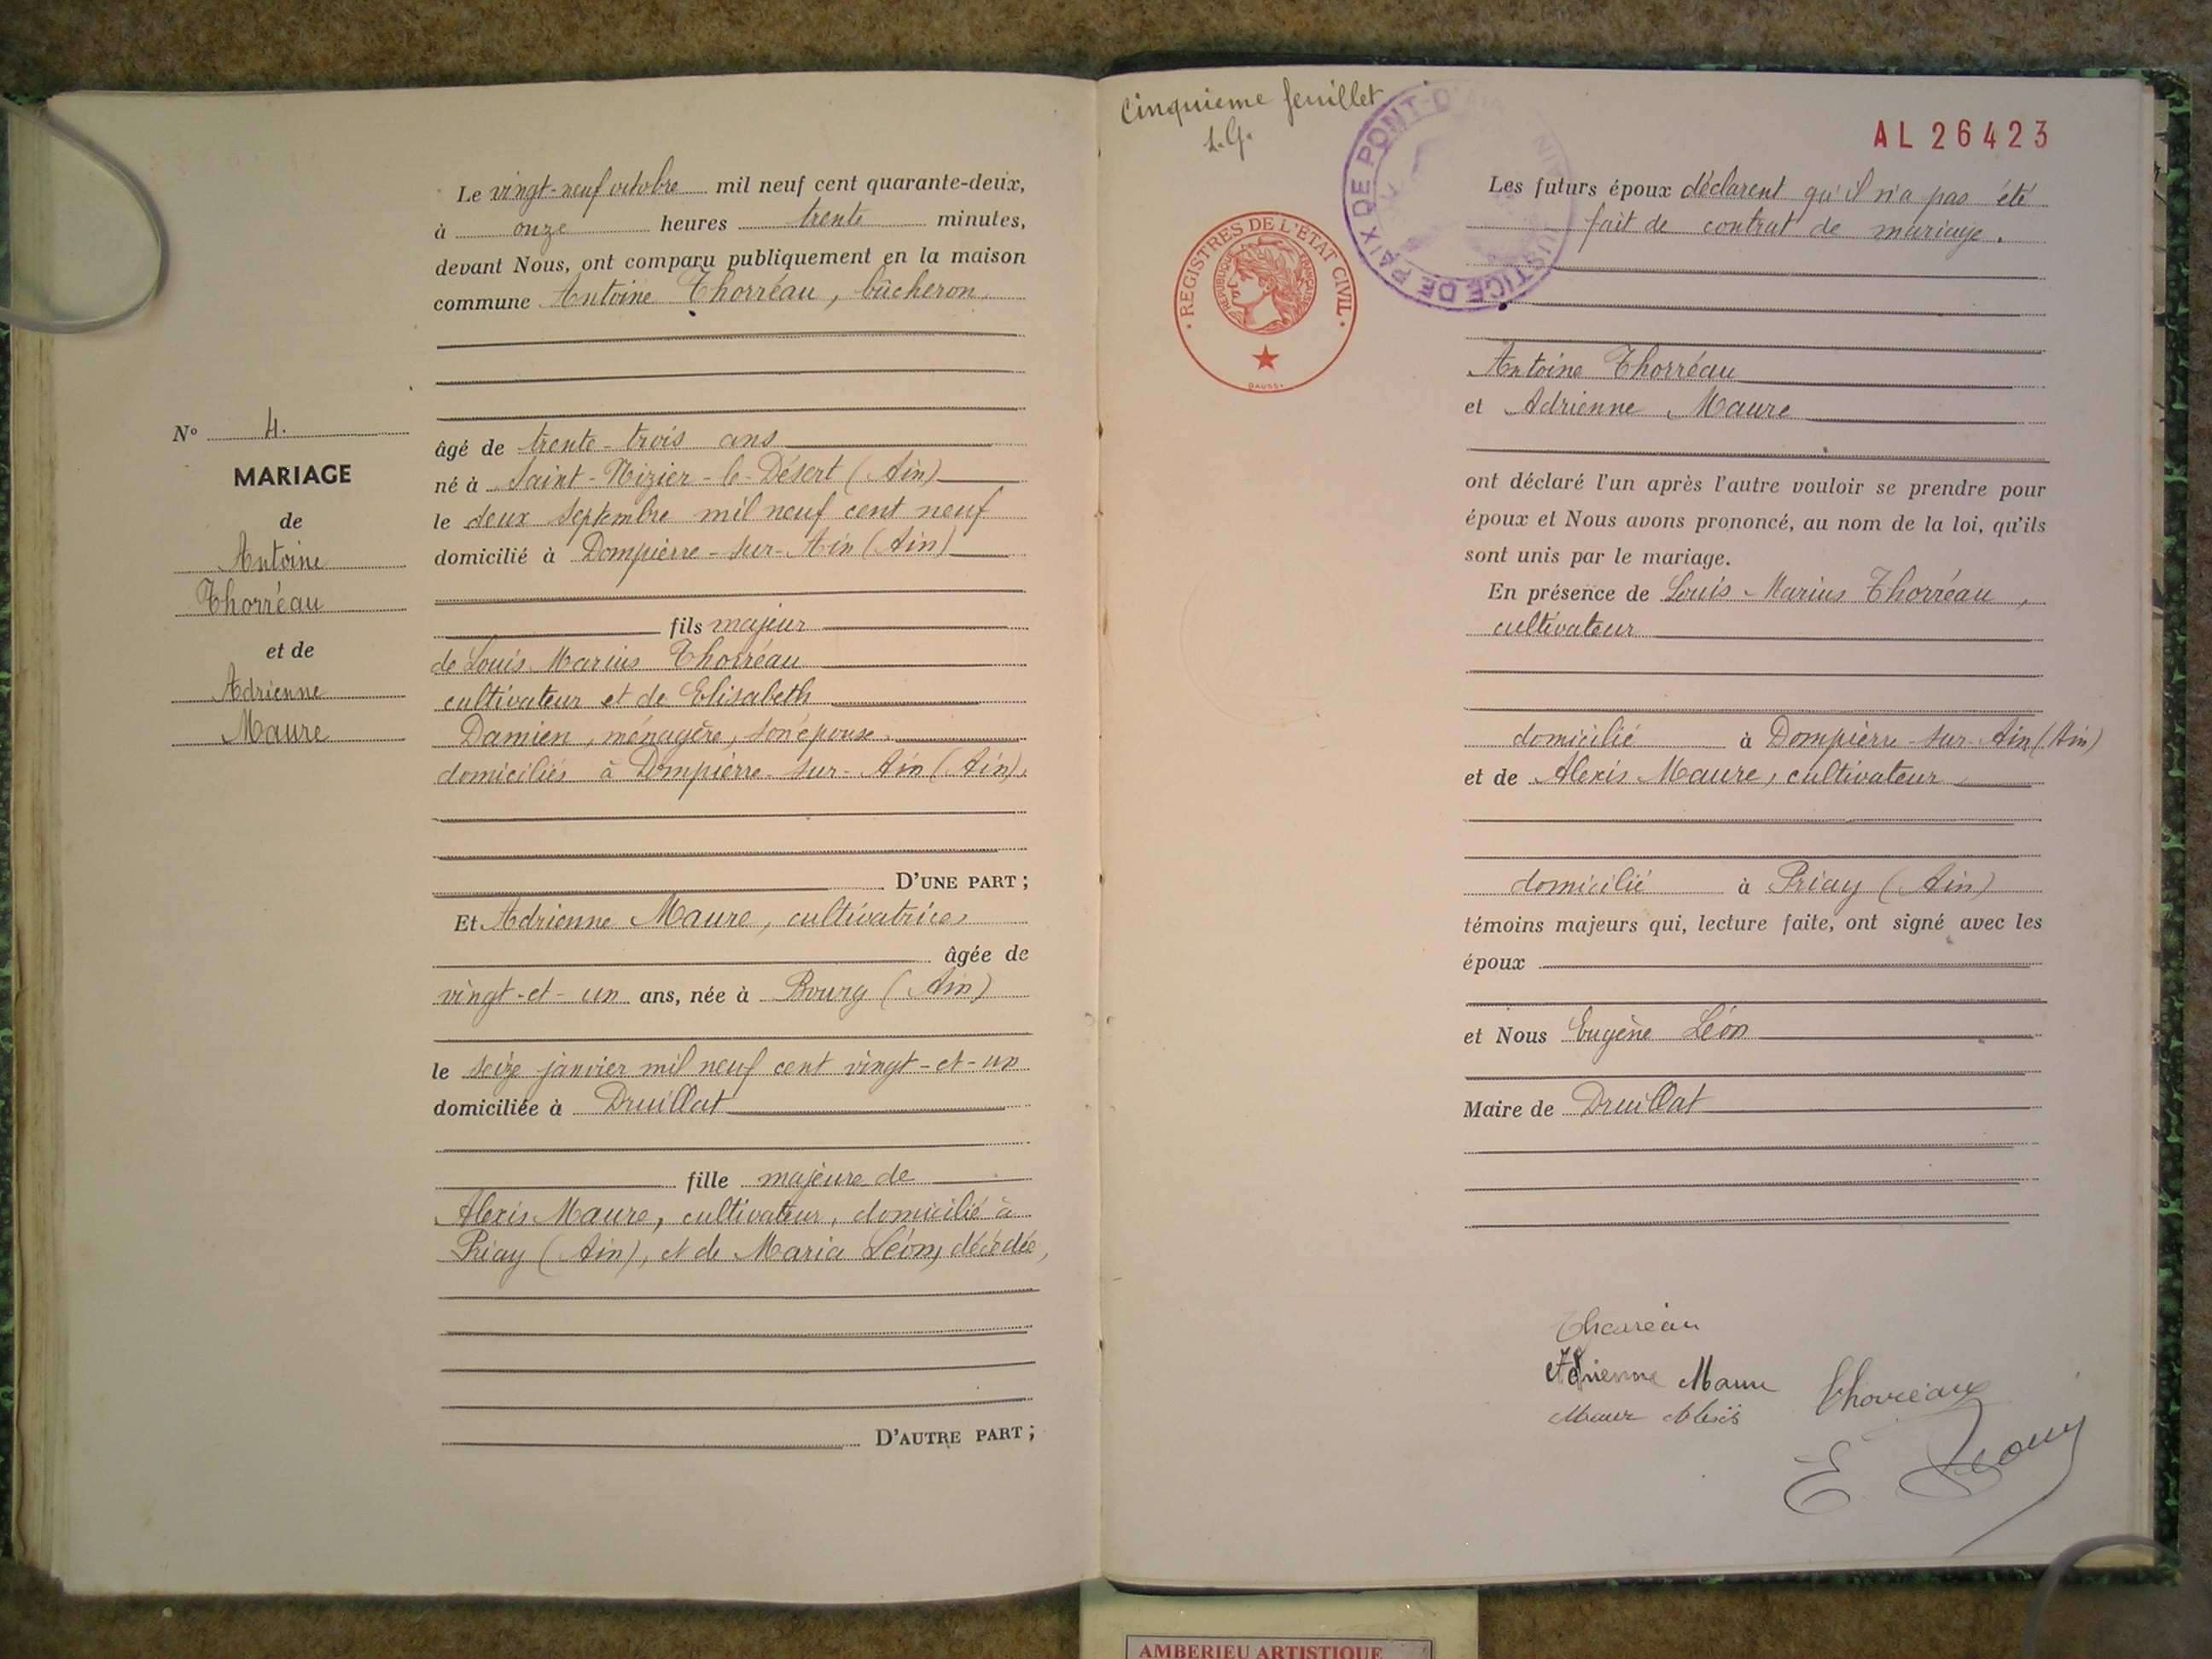 Le vingt-neuf octobre mil neuf cent quarante-deux,
à onze heures trente minutes,
devant Nous, ont comparu publiquement en la maison
commune Antoine Thorréau, bûcheron
âgé de trente-trois ans
né à Saint-Nizier-le-Désert (Ain)
le deux septembre mil neuf cent neuf
domicilié à Dompierre-sur-Ain (Ain)
fils majeur
de Louis Marius Thorréau
cultivateur et de Elisabeth
Damien, ménagère, son épouse,
domiciliés à Dompierre-sur-Ain (Ain),
D'UNE PART ;
Et Adrienne Maure, cultivatrice,
âgée de
vingt-et-un ans, née à Bourg (Ain)
le seize janvier mil neuf cent vingt-et-un
domiciliée à Druillat
fille majeure de
Alexis Maure, cultivateur, domicilié à
Priay (Ain), et de Maria Léon, décédée,
D'AUTRE PART ;
N° 4.
MARIAGE
de
Antoine
Thorréau
et de
Adrienne
Maure
Cinquième feuillet
L.G.
JUSTICE DE PAIX DE PONT-D'AIN
REGISTRES DE L'ÉTAT CIVIL
RÉPUBLIQUE FRANÇAISE
AL 26423
Les futurs époux déclarent qu'il n'a pas été
fait de contrat de mariage.
Antoine Thorréau
et Adrienne Maure
ont déclaré l'un après l'autre vouloir se prendre pour
époux et Nous avons prononcé, au nom de la loi, qu'ils
sont unis par le mariage.
En présence de Louis-Marius Thorréau,
cultivateur
domicilié à Dompierre-sur-Ain (Ain)
et de Alexis Maure, cultivateur
domicilié à Priay (Ain)
témoins majeurs qui, lecture faite, ont signé avec les
époux
et Nous Eugène Léon
Maire de Druillat
Thorréau
Adrienne Maure
Thorréau
Maure Alexis
E Léon
AMBERIEU ARTISTIQUE